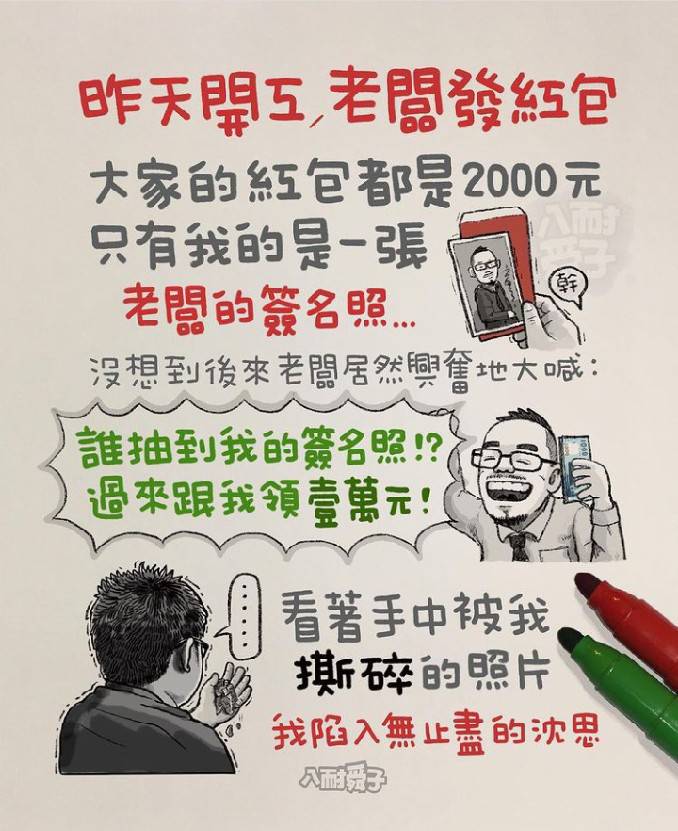 昨天開工,老闆發紅包
大家的紅包都是2000元
八耐
舜子
只有我的是一張
幹
老闆的簽名照...
沒想到後來老闆居然興奮地大喊:
誰抽到我的簽名照!?
過來跟我領壹萬元!
......
看著手中被我
撕碎的照片
我陷入無止盡的沈思
八耐舜子